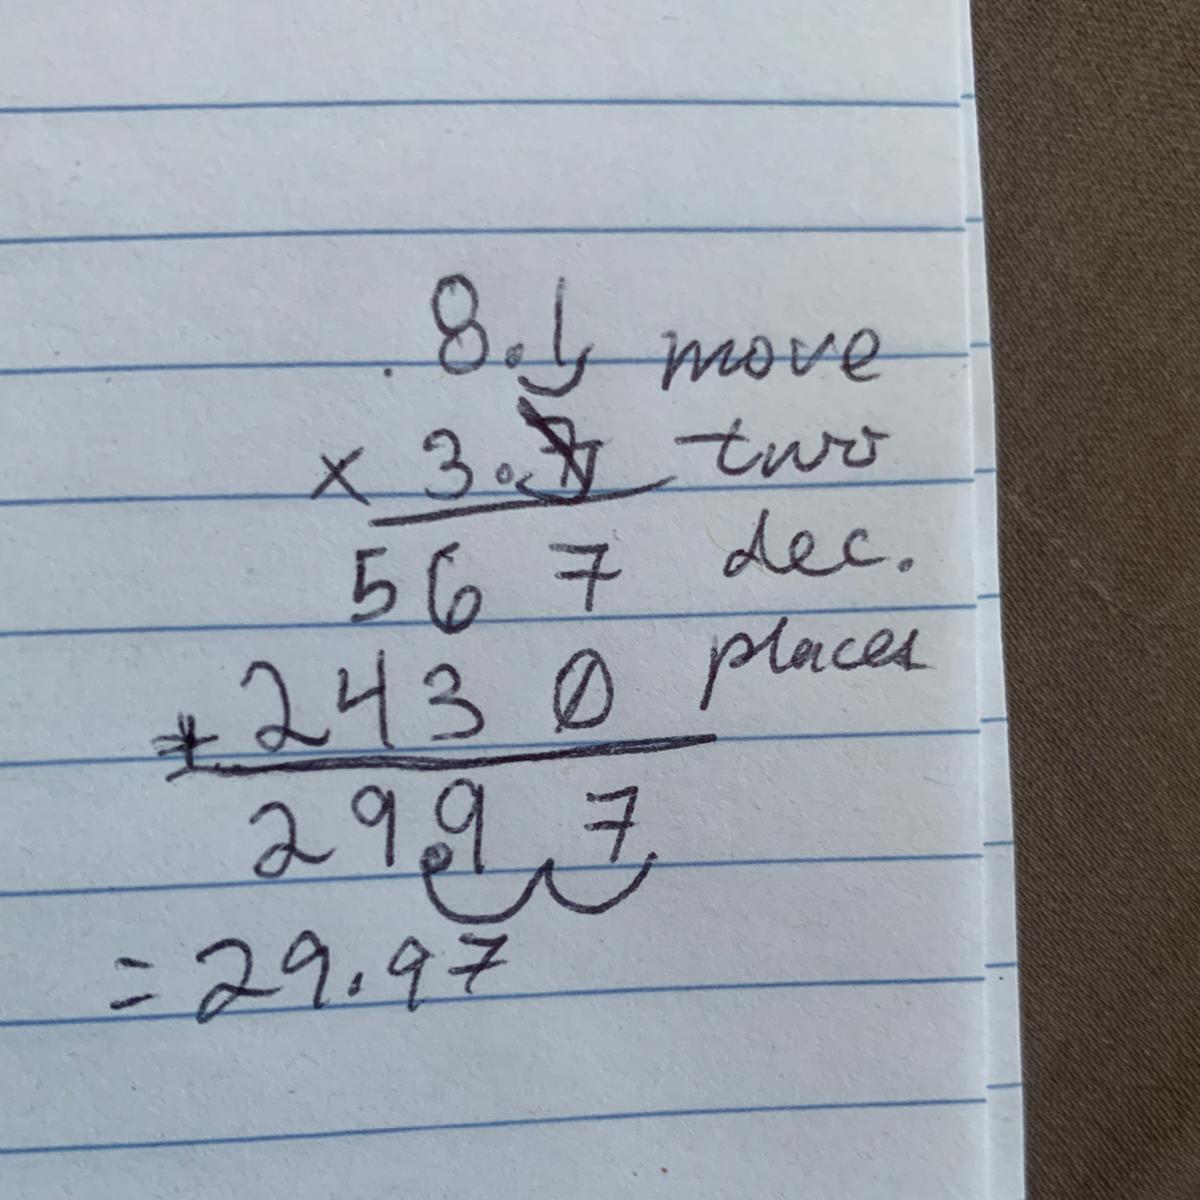 8.1 move
× 3.7 two
567 dec.
+ 2430 places
2997
= 29.97